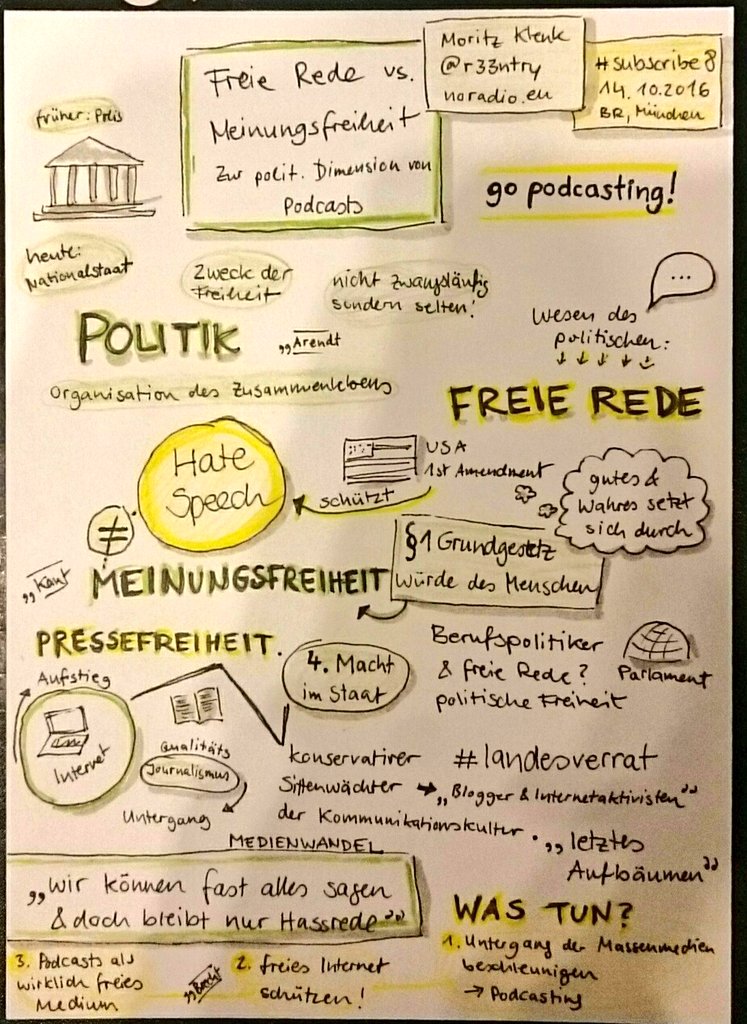 Freie Rede vs.
Meinungsfreiheit
Zur polit. Dimension von
Podcasts
Moritz Klenk
@r33ntry
noradio.eu
#subscribe8
14.10.2016
BR, München
früher: Polis
go podcasting!
heute:
Nationalstaat
Zweck der
Freiheit
nicht zwangsläufig
sondern selten!
...
Wesen des
politischen:
POLITIK
„Arendt
Organisation des Zusammenlebens
FREIE REDE
Hate
Speech
USA
1st Amendment
schützt
gutes &
Wahres setzt
sich durch
≠
§1 Grundgesetz
Würde des Menschen
„Kant
MEINUNGSFREIHEIT
PRESSEFREIHEIT.
4. Macht
im Staat
Berufspolitiker
& freie Rede?
politische Freiheit
Parlament
Aufstieg
Internet
Qualitäts
Journalismus
Untergang
konservativer
Sittenwächter
der Kommunikationskultur
#landesverrat
„Blogger & Internetaktivisten“
„letztes
Aufbäumen“
MEDIENWANDEL
„wir können fast alles sagen
& doch bleibt nur Hassrede“
WAS TUN?
1. Untergang der Massenmedien
beschleunigen
→ Podcasting
2. freies Internet
schützen!
„Brecht
3. Podcasts als
wirklich freies
Medium